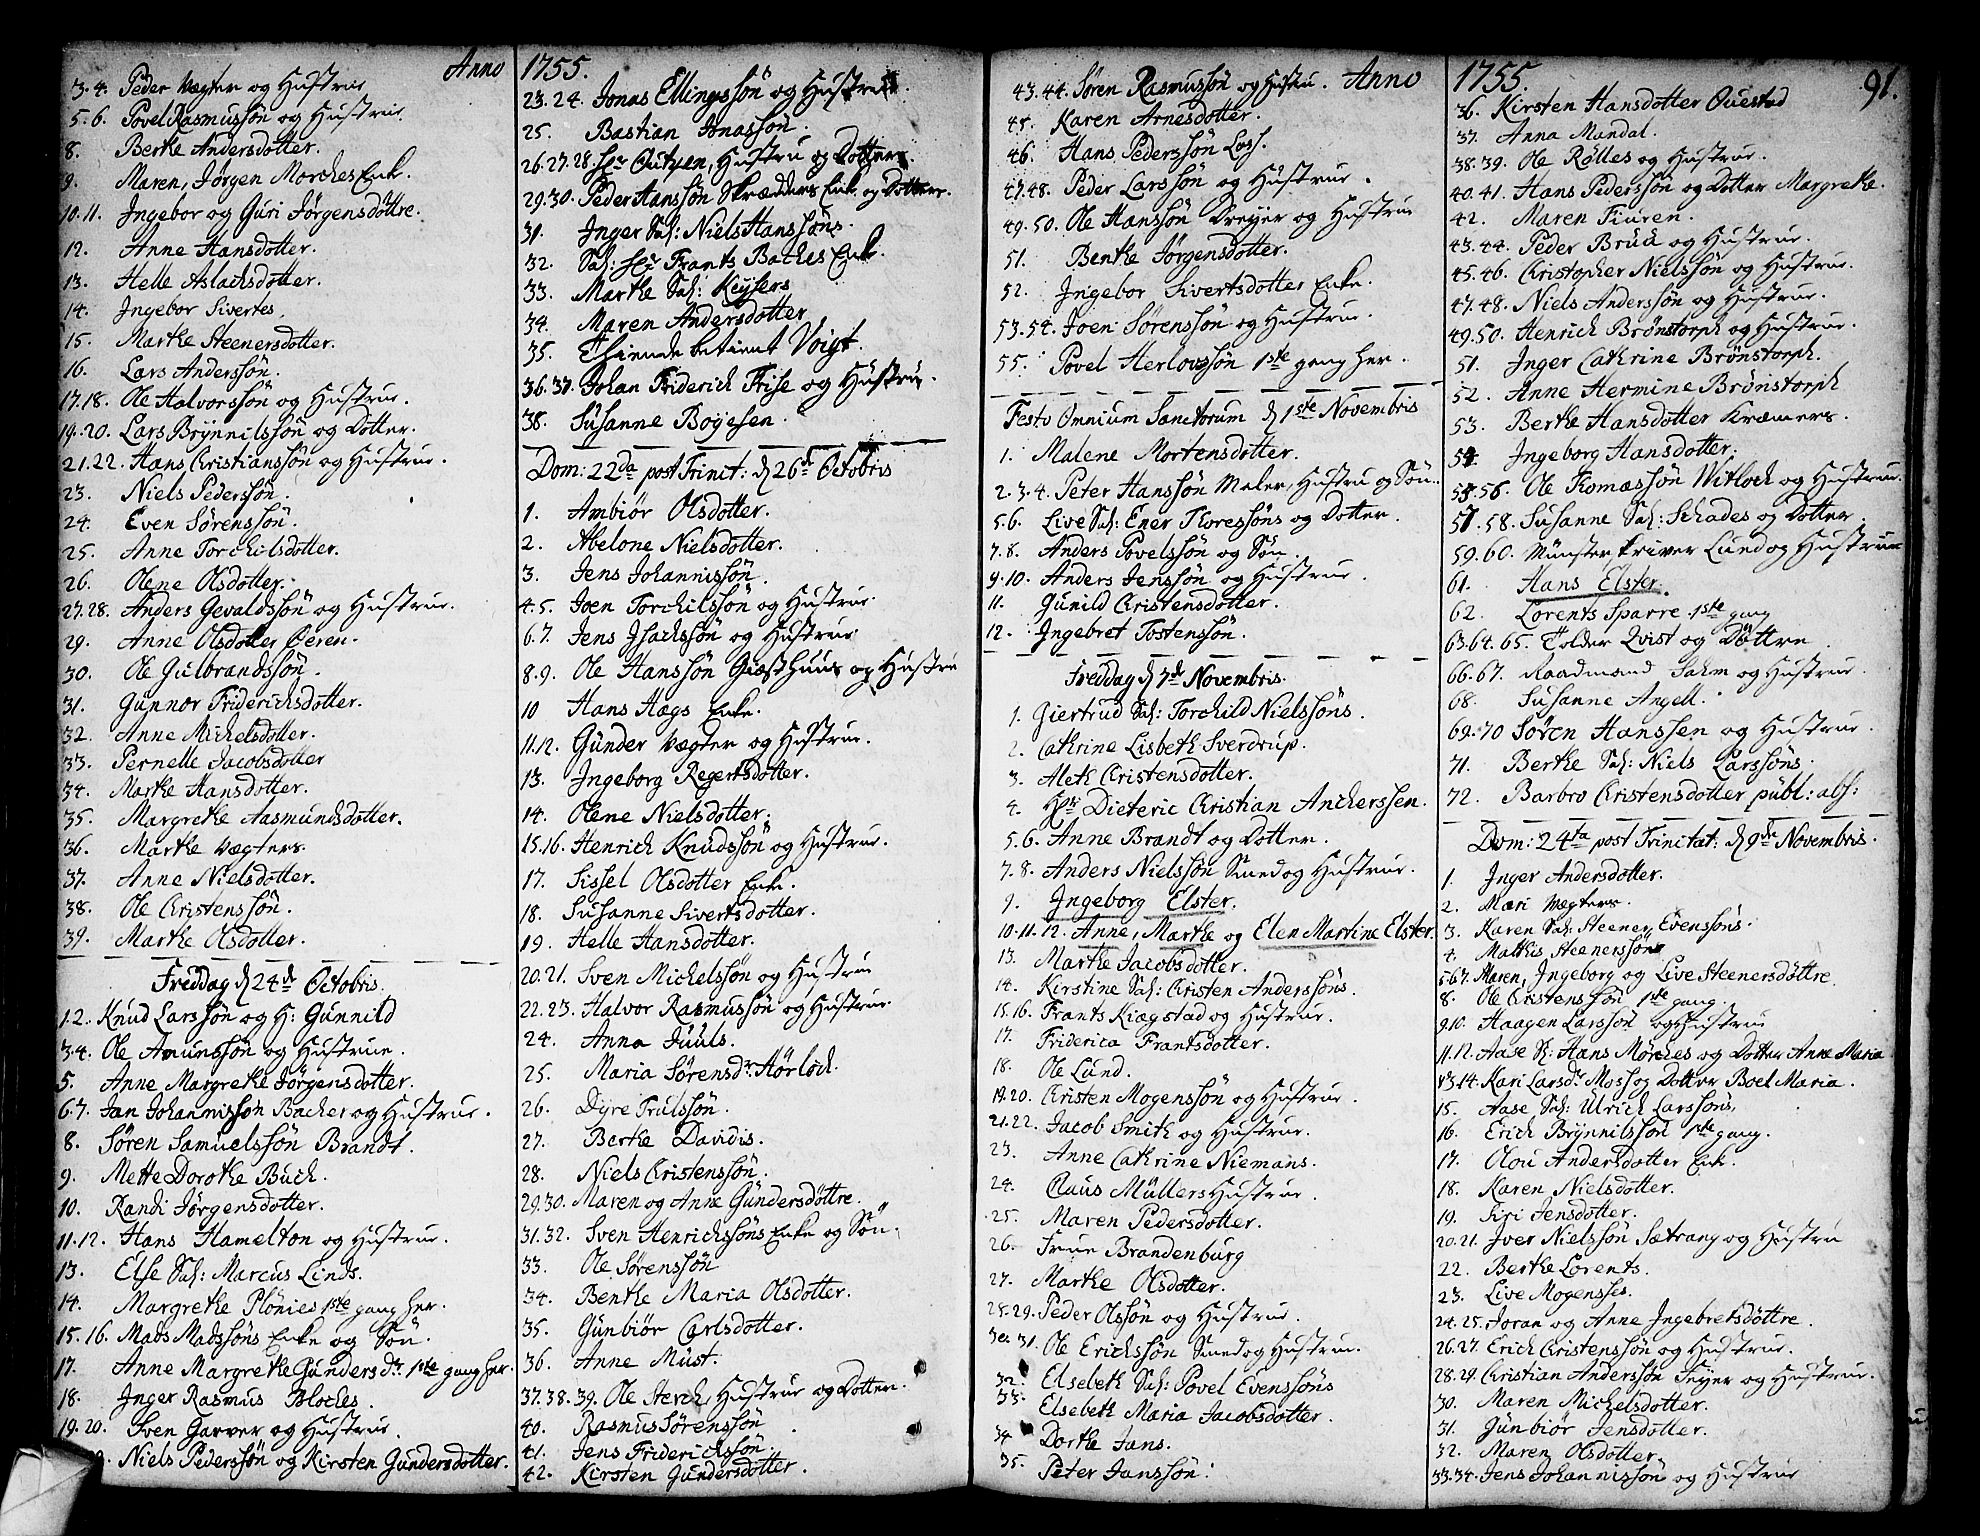 Anno 1755.
3.4. Peder Vægter og Hustrue
5.6. Povel Rasmussøn og Hustrue.
8. Berthe Andersdotter.
9. Maren, Jørgen Morches Enke.
10.11. Ingebor og Guri Jørgensdøttre.
12. Anne Hansdotter.
13. Helle Aslachsdotter.
14. Ingebor Sivertes.
15. Marthe Steenersdotter.
16. Lars Anderssøn.
17.18. Ole Halvorssøn og Hustrue.
19.20. Lars Brynnilssøn og Dotter.
21.22. Hans Christianssøn og Hustrue.
23. Niels Pederssøn.
24. Even Sørenssøn.
25. Anne Torchilsdotter.
26. Olene Olsdotter.
27.28. Anders Gevaldssøn og Hustrue.
29. Anne Olsdotter Beren.
30. Ole Gulbrandssøn.
31. Gunnor Friderichsdotter.
32. Anne Michelsdotter.
33. Pernelle Jacobsdotter
34. Marthe Hansdotter.
35. Margrethe Aasmundsdotter.
36. Marthe Vægters.
37. Anne Nielsdotter.
38. Ole Christenssøn.
39. Marthe Olsdotter.
Freddag d 24de Octobris.
1.2. Knud Larssøn og H: Gunnild
3.4. Ole Amunssøn og Hustrue.
5. Anne Margrethe Jørgensdotter.
6.7. Jan Johannissøn Bacher og Hustrue.
8. Søren Samuelssøn Brandt.
9. Mette Dorothe Buch.
10. Randi Jørgensdotter.
11.12. Hans Hamelton og Hustrue.
13. Else Sal: Marcus Linds.
14. Margrethe Plønies 1ste gang her.
15.16. Mads Madssøns Enke og Søn.
17. Anne Margrethe Gundersdr. 1ste gang her.
18. Inger Rasmus Bloches.
19.20. Sven Garver og Hustrue.
Niels Pederssøn og Kirsten Gundersdotter.
23.24. Jonas Ellingssøn og Hustrue.
25. Bastian Jonassøn.
26.27.28. Hustru og Dotter.
29.30. Peder Hanssøn Skrædders Enke og Dotter.
31. Inger Sal: Niels Hanssøns.
32. Sal: Hr Frants Baches Enke.
33. Marthe Sal: Keysers
34. Maren Andersdotter
35. betient Voigt.
36.37. Johan Friderich Frise og Hustrue.
38. Susanne Boyesen.
Dom: 22da post Trinit: d 26de Octobris
1. Ambiør Olsdotter.
2. Abelone Nielsdotter.
3. Jens Johannissøn.
4.5. Joen Torchilssøn og Hustrue.
6.7. Jens Isachssøn og Hustrue
8.9. Ole Hanssøn Giæsthuus og Hustru
10 Hans Hægs Enke.
11.12. Gunder Vægter og Hustrue.
13. Ingeborg Regertsdotter.
14. Olene Nielsdotter.
15.16. Henrich Knudssøn og Hustrue.
17. Sissel Olsdotter Enke.
18. Susanne Sivertsdotter.
19. Helle Hansdotter.
20.21. Sven Michelssøn og Hustrue
22.23. Halvor Rasmussøn og Hustrue.
24. Anna Juuls.
25. Maria Sørensdr. Hørløch.
26. Dyre Trulssøn.
27. Berthe Davidis.
28. Niels Christenssøn.
29.30. Maren og Anne Gundersdøttre.
31.32. Sven Henrichssøns Enke og Søn.
33. Ole Sørenssøn
34. Benthe Maria Olsdotter.
35. Gunbiør Carlsdotter.
36. Anne Must.
37.38.39. Ole Sterch, Hustrue og Dotter.
40. Rasmus Sørenssøn
41. Jens Friderichssøn
42. Kirsten Gundersdotter.
Anno 1755. 91.
43.44. Søren Rasmussøn og Hustru.
45. Karen Arnesdotter.
46. Hans Pederssøn Loss.
47.48. Peder Larssøn og Hustrue.
49.50. Ole Hanssøn Dreyer og Hustrue
51. Benthe Jørgensdotter.
52. Ingebor Sivertsdotter Enke.
53.54. Joen Sørenssøn og Hustrue.
55. Povel Herlovssøn 1ste gang her.
Festo Omnium Sanctorum d 1ste Novembris
1. Malene Mortensdotter.
2.3.4. Peter Hanssøn Maler, Hustru og Søn.
5.6. Live Sal: Ener Thoressøns og Dotter.
7.8. Anders Povelssøn og Søn.
9.10. Anders Jenssøn og Hustrue.
11. Gunild Christensdotter.
12. Ingebret Tostenssøn.
Freddag d 7de Novembris.
1. Giertrud Sal: Torchild Nielssøns.
2. Cathrine Lisbeth Sverdrup.
3. Aleth Christensdotter.
4. Hr. Dieteric Christian Anckerssen.
5.6. Anne Brandt og Dotter.
7.8. Anders Nielssøn Smed og Hustrue.
9. Ingeborg Elster.
10.11.12. Anne, Marthe og Elen Martine Elster.
13. Marthe Jacobsdotter.
14. Kirstine Sal: Christen Anderssøns.
15.16. Frants Kiægstad og Hustrue.
17. Friderica Frantsdotter.
18. Ole Lund.
19.20. Christen Mogenssøn og Hustrue.
21.22. Jacob Smith og Hustrue.
23. Anne Cathrine Niemans.
24. Claus Müllers Hustrue.
25. Maren Pedersdotter.
26. Frue Brandenburg
27. Marthe Olsdotter.
28.29. Peder Olssøn og Hustrue.
30 31. Ole Erichssøn Smed og Hustrue.
32. Elsebeth Sal: Povel Evenssøns
33. Elsebeth Maria Jacobsdotter.
34 Dorthe Jans.
35. Peter Janssøn.
36. Kirsten Hansdotter Questad
37. Anna Mandal.
38.39. Ole Rølles og Hustrue.
40.41. Hans Pederssøn og Dotter Margrethe.
42. Maren Fiuren.
43.44. Peder Bruu og Hustrue.
45.46. Christopher Nielssøn og Hustrue.
47.48. Niels Anderssøn og Hustrue.
49.50. Henrich Brønstorph og Hustrue.
51. Inger Cathrine Brønstorph.
52. Anne Hermine Brønstorph
53. Berthe Hansdotter Kræmers.
54. Ingeborg Hansdotter.
55.56. Ole Thomæssøn Witloch og Hustrue.
57.58. Susanne Sal: Schades og Dotter
59.60. Münsterskriver Lund og Hustrue
61. Hans Elster.
62. Lorents Sparre 1ste gang
63.64.65. Tolder Qvist og Døttre
66.67. Raadmand Sahm og Hustrue.
68. Susanne Angell.
69.70 Søren Hanssen og Hustrue.
71. Berthe Sal: Niels Larssøns.
72. Barbro Christensdotter publ: abs:
Dom: 24ta post Trinitat: d 9de Novembris.
1. Inger Andersdotter.
2. Mari Vægters.
3. Karen Sal: Steener Evenssøns.
4. Mathis Steenerssøn
5.6.7. Maren, Ingeborg og Live Steenersdøttre.
8. Ole Christenssøn 1ste gang.
9.10. Haagen Larssøn og Hustrue
11.12. Aase Sl: Hans Mørches og Dotter Anne Maria
13.14. Kari Larsdr. Moss og Dotter Boel Maria.
15. Aase Sal: Ulrich Larssøns.
16. Erich Brynnilssøn 1ste gang.
17. Olou Andersdotter Enke.
18. Karen Nielsdotter.
19. Siri Jensdotter.
20.21. Iver Nielssøn Sætrang og Hustru
22. Berthe Lorents.
23. Live Mogenses.
24.25. Joran og Anne Ingebretsdøttre.
26.27. Erich Christenssøn og Hustrue.
28.29. Christian Anderssøn Feyer og Hustrue.
30. Maren Michelsdotter.
31. Gunbiør Jensdotter.
32. Maren Olsdotter
33.34. Jens Johannissøn og Hustrue